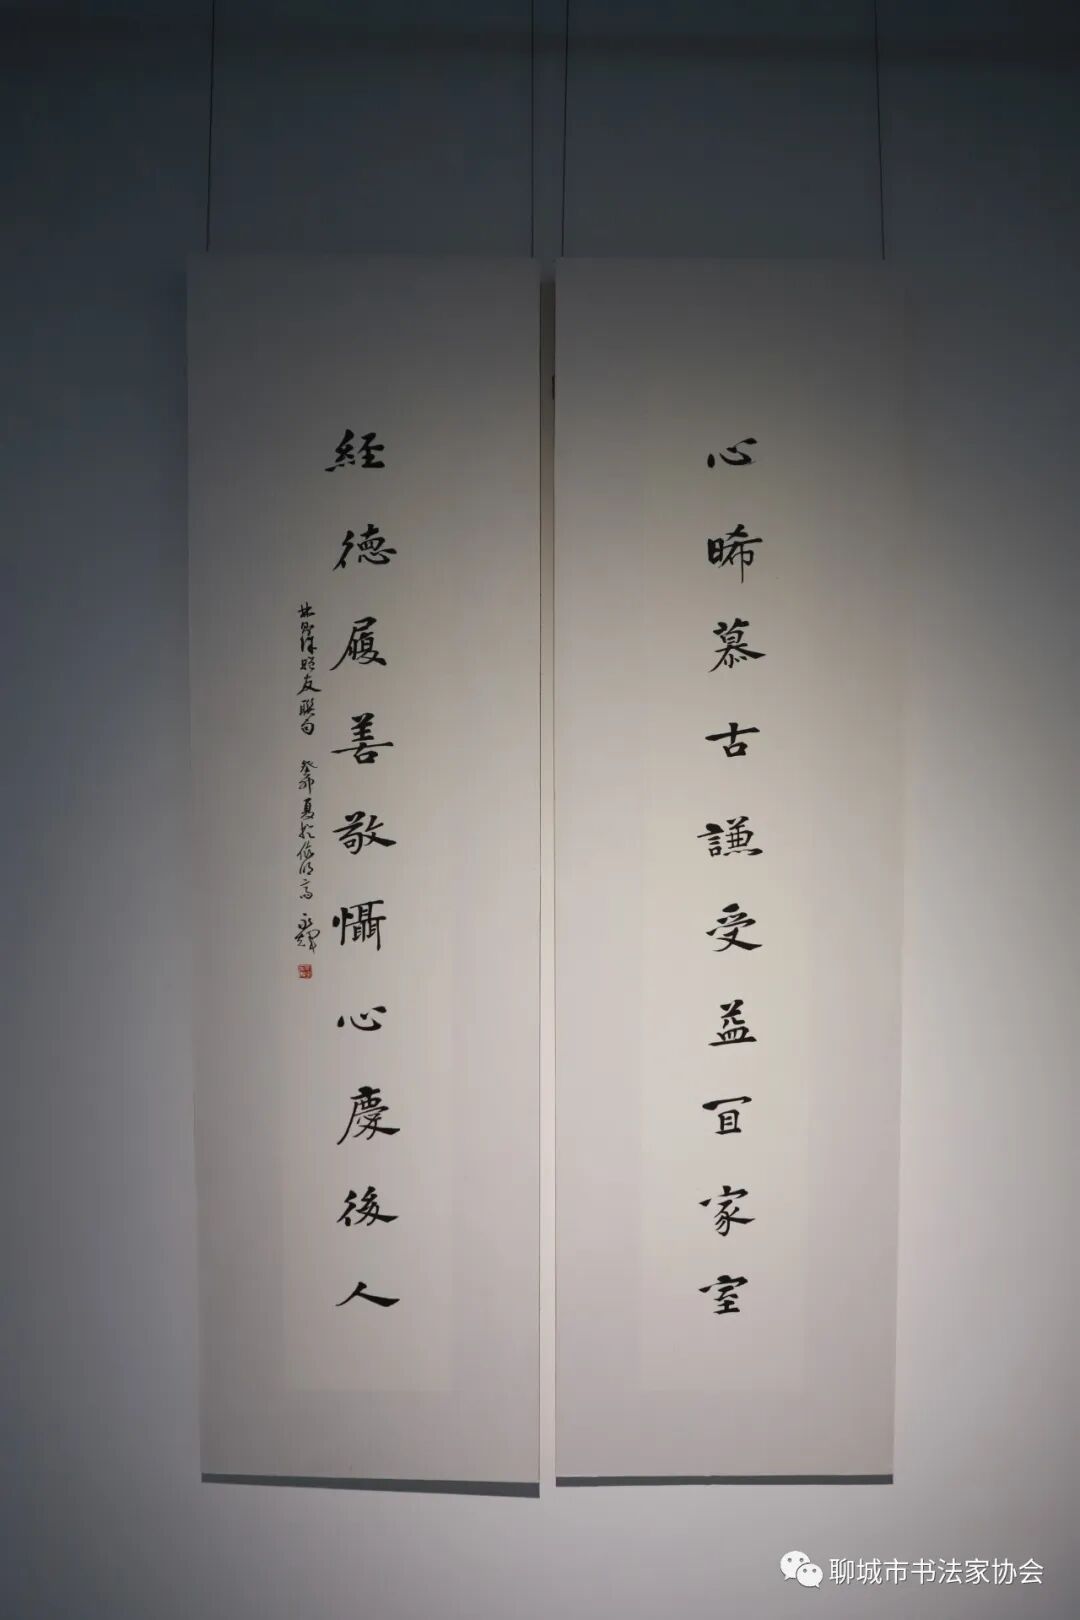 心晞慕古謙受益冝家室
経徳履善敬懾心慶後人
林則徐贈友聯句 癸卯夏於
聊城市书法家协会